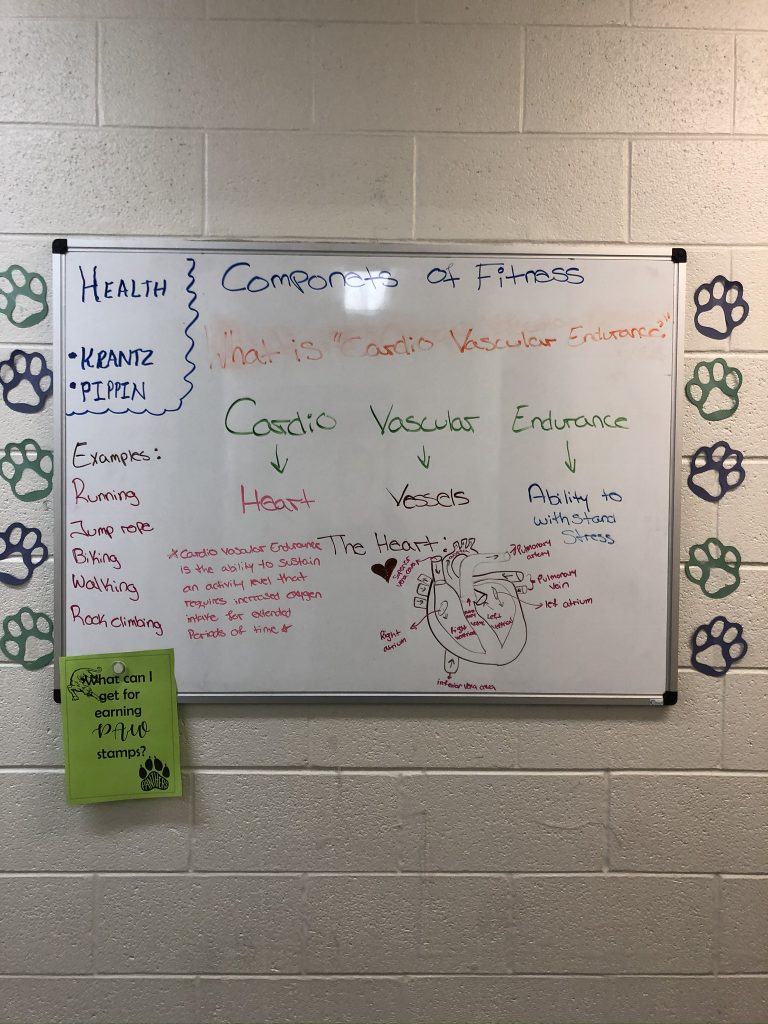 HEALTH
• KRANTZ
• PIPPIN
Componets of Fitness
What is "Cardio Vascular Endurance?"
Cardio Vascular Endurance
Heart Vessels Ability to
withstand
Stress
Examples:
Running
Jump rope
Biking
Walking
Rock climbing
*Cardio vascular Endurance
is the ability to sustain
an activity level that
requires increased oxygen
intake for extended
Periods of time*
The Heart:
Superior
vena cava
Pulmonary
artery
Pulmonary
vein
left atrium
Right
atrium
Right
ventrical
Left
ventrical
inferior vena cava
What can I
get for
earning
PAW
stamps?
PANTHERS